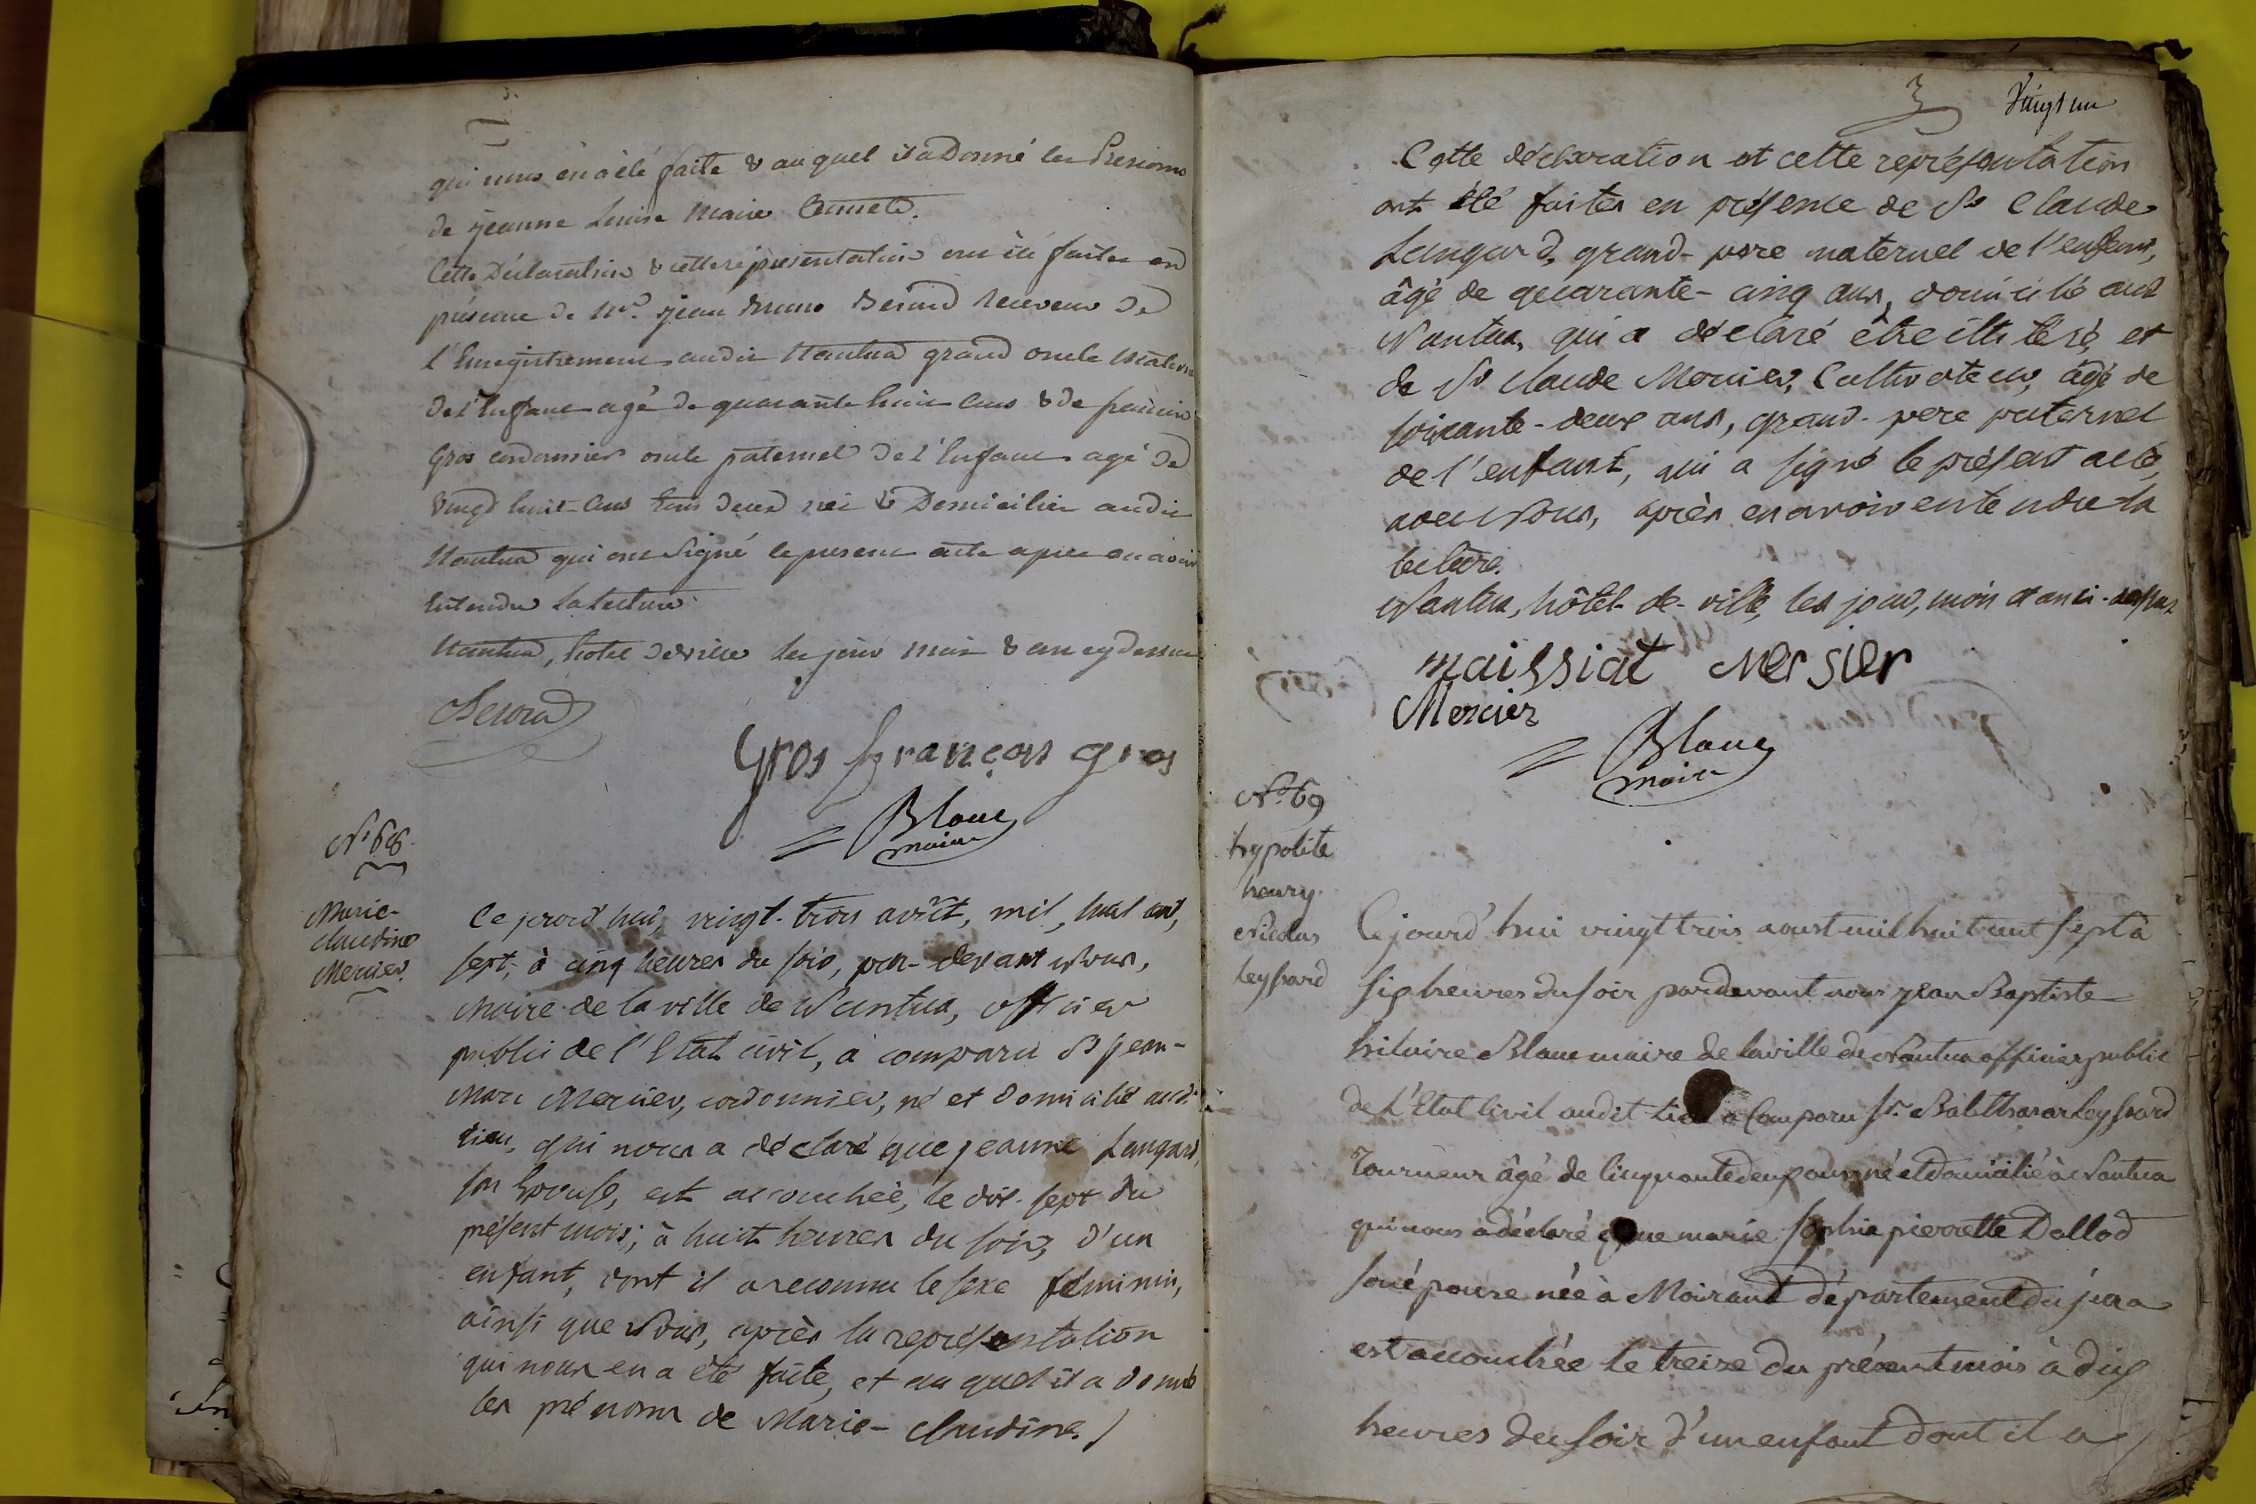 qui nous en a été faite & auquel il a Donné les Prenoms
de jeanne Louise Marie
Cette Déclaration & cette representation ont été faites en
présence de Mr. jean Bruno Berard Receveur De
l'Enregistrement audit Nantua grand oncle Matern
De l'Enfant agé De quarante huit ans & de françois
Gros cordonnier oncle paternel De l'Enfant agé De
vingt huit ans tous deux nés & Domiciliés audit
Nantua qui ont Signé le present acte après en avoir
Entendu la lecture
Nantua, hotel deville les jour mois & an cy dessus
Gros françois gros
Blanc
maire
N° 68.
Marie-
claudine
Mercier.
Ce jourd'hui, vingt-trois août, mil, huit cent,
sept, à cinq heures du soir, par-devant Nous,
Maire de la ville de Nantua, officier
public de l'Etat civil, a comparu Sr jean-
Marc Mercier, cordonnier, né et domicilié audit
lieu, qui nous a déclaré que jeanne Langard,
son Epouse, est accouchée, le dix-sept du
présent mois, à huit heures du soir, d'un
enfant, dont il a reconnu le sexe féminin,
ainsi que Nous, après la représentation
qui nous en a été faite, et auquel il a donné
les prénoms de Marie-claudine.
Vingt un
Cette déclaration et cette représentation
ont été faites en présence de Sr Claude
Langard, grand-père maternel de l'enfant,
âgé de quarante-cinq ans, domicilié audt
Nantua, qui a déclaré être illitéré, et
de Sr claude Mercier, Cultivateur, âgé de
soixante-deux ans, grand-père paternel
de l'enfant, qui a signé le présent acte,
avec Nous, après en avoir entendu la
lecture.
Nantua, hôtel-de-ville, les jour, mois et an ci-dessus
maissiat Mersier
Mercier
Blanc
maire
N° 69
hypolite
henry
Nicolas
leyssard
Cejourd'hui vingt trois aoust mil huit cent sept à
six heures du soir pardevant nous jean Baptiste
hilaire Blanc maire de laville de Nantua officier public
de L'Etat Civil audit lieu a Comparu Sr. Balthazar Leyssard
Tourneur âgé de Cinquante deux ans né et domicilié à Nantua
qui nous a déclaré que marie Sophie pierrette Dallod
son épouse née à Moirand département du jura
est accouchée le treize du présent mois à dix
heures du soir d'un enfant dont il a